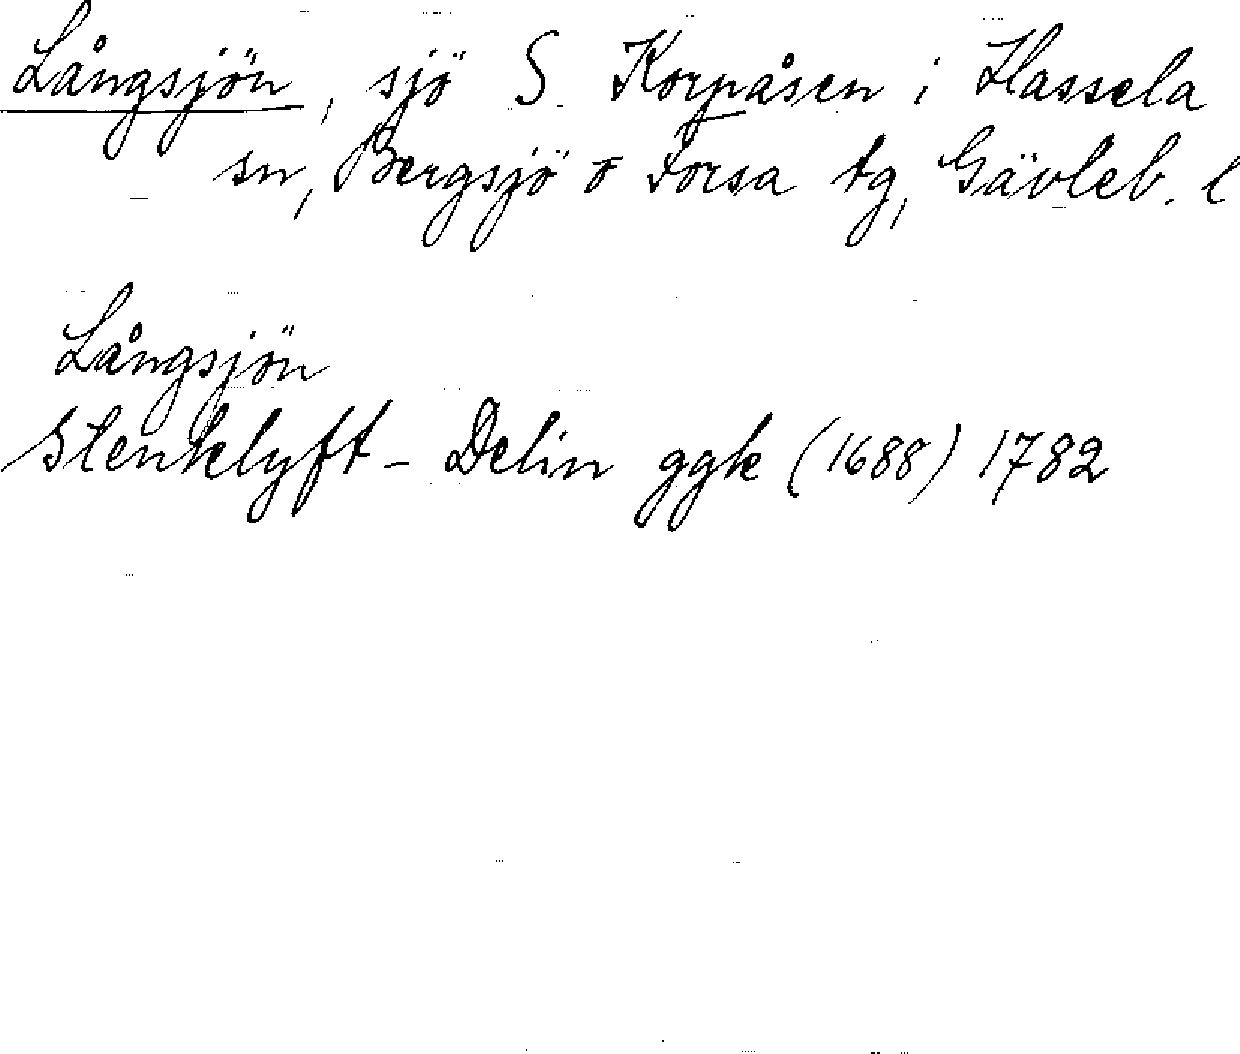 Långsjön, sjö S. Korpåsen i Hassela
sn, Bergsjö o Forsa tg, Gävleb. l
Långsjön
Stenklyft - Delin ggk (1688) 1782